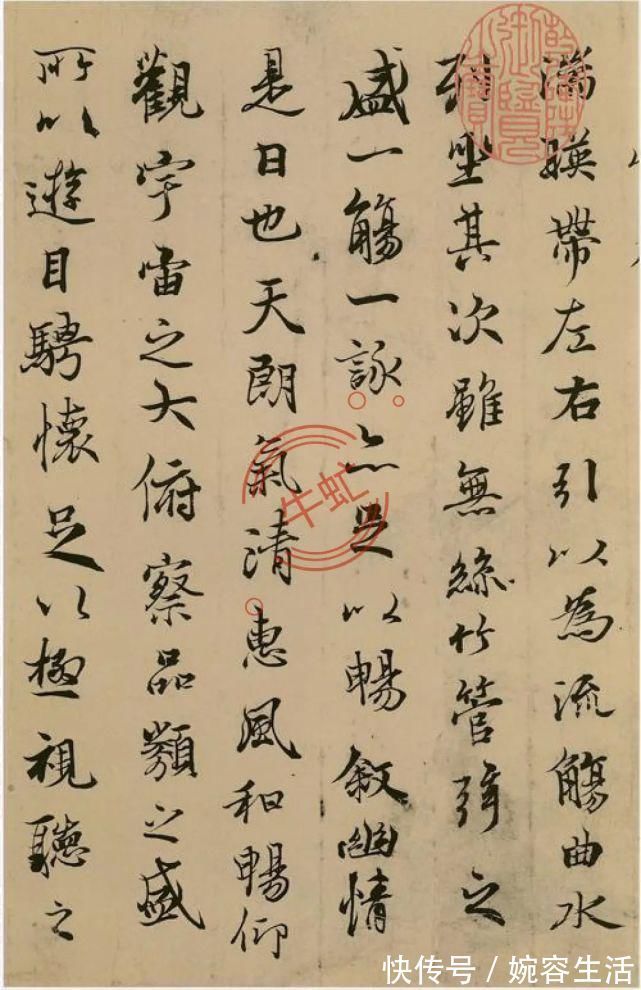 湍暎帶左右引以為流觴曲水
列坐其次雖無絲竹管弦之
盛一觴一詠亦足以暢敘幽情
是日也天朗氣清惠風和暢仰
觀宇宙之大俯察品類之盛
所以遊目騁懷足以極視聽之
乾隆御覽之寶
牛虹
快传号 / 婉容生活